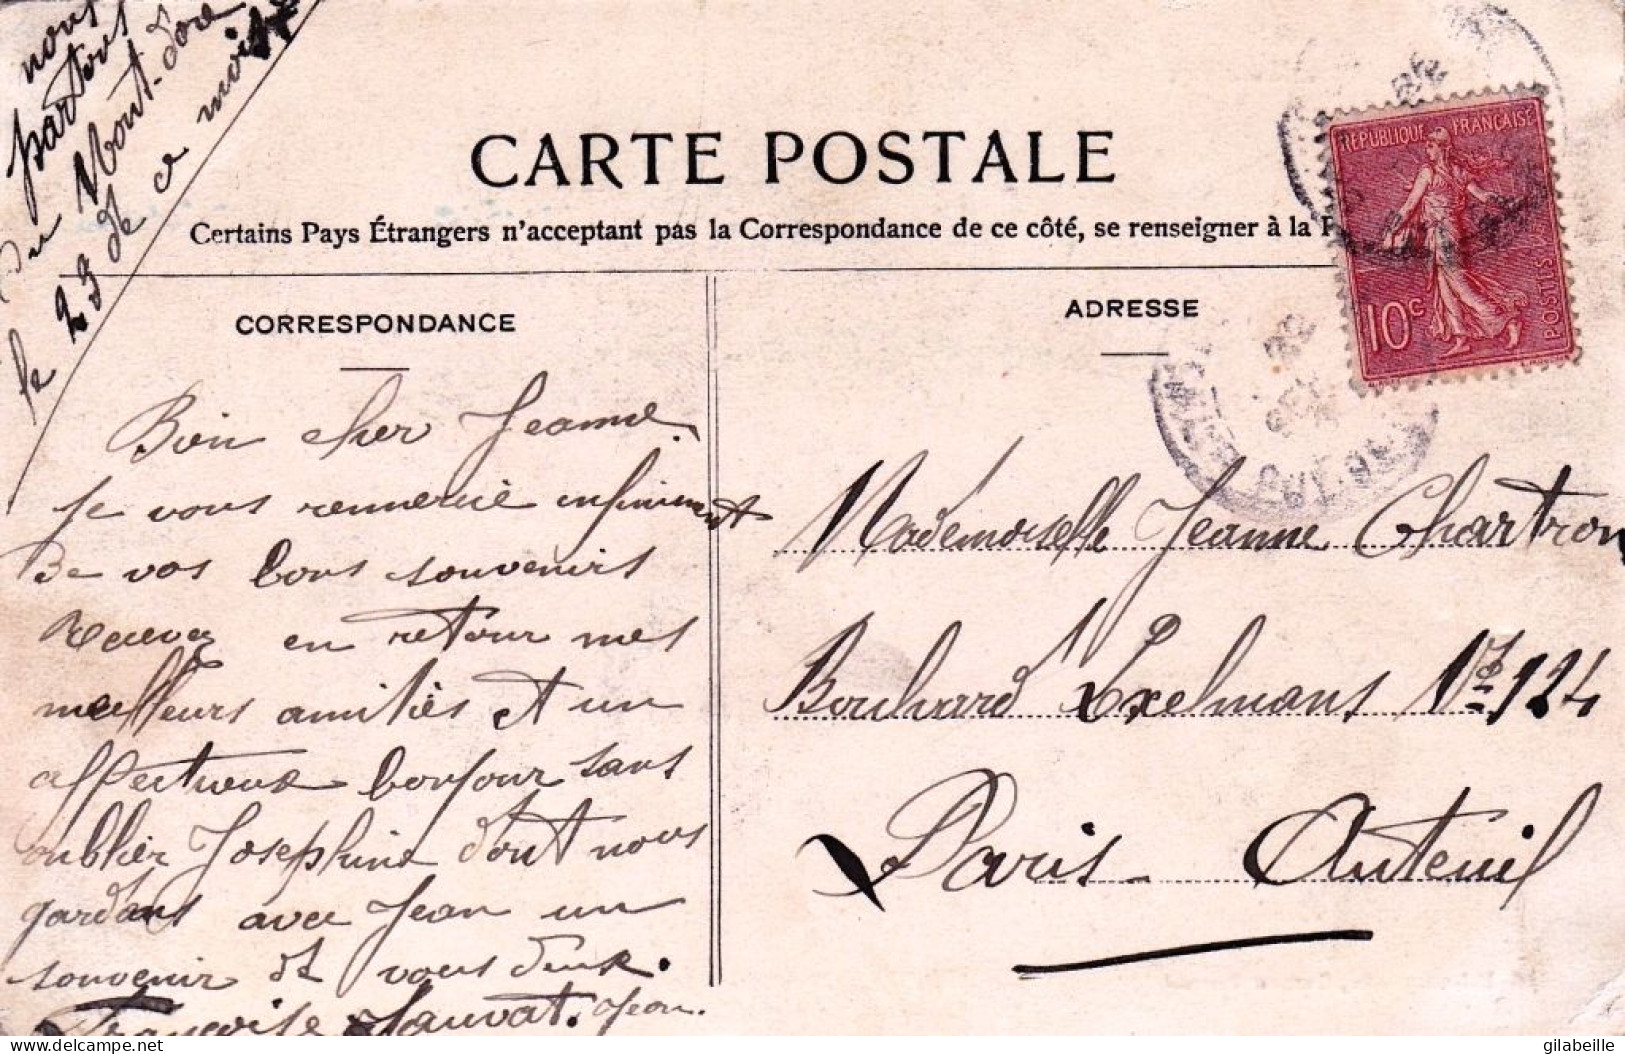 nous
partons
du Mont-Dore
le 23 de ce mois
CARTE POSTALE
Certains Pays Étrangers n'acceptant pas la Correspondance de ce côté, se renseigner à la P
CORRESPONDANCE
Bien cher Jeanne.
Je vous remercie infiniment
De vos bons souvenirs
Recevez en retour mes
meilleurs amitiés et un
affectueux bonjour sans
oublier Josephine dont nous
gardons avec Jean un
souvenir et vous deux.
Françoise Jean.
ADRESSE
Mademoiselle Jeanne Chartron
Boulevard Exelmans No 124
Paris - Auteuil
RÉPUBLIQUE FRANÇAISE
10c
POSTES
delcampe.net
gilabeille